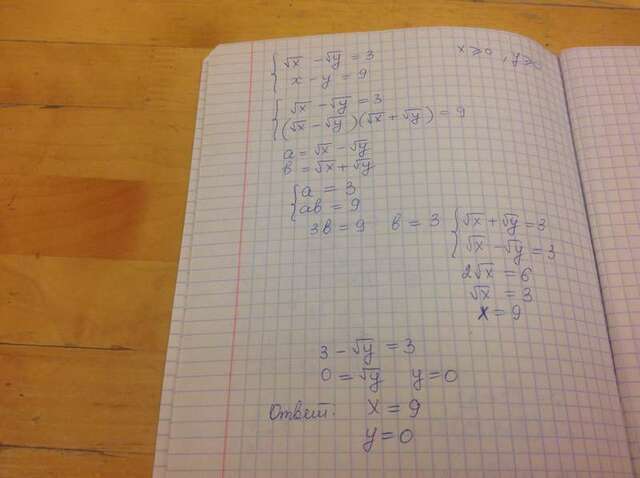 √x − √y = 3
x − y = 9
x ⩾ 0, y ⩾ 0
√x − √y = 3
(√x − √y)(√x + √y) = 9
a = √x − √y
b = √x + √y
a = 3
ab = 9
3b = 9 b = 3
√x + √y = 3
√x − √y = 3
2√x = 6
√x = 3
x = 9
3 − √y = 3
0 = √y y = 0
Ответ: x = 9
y = 0